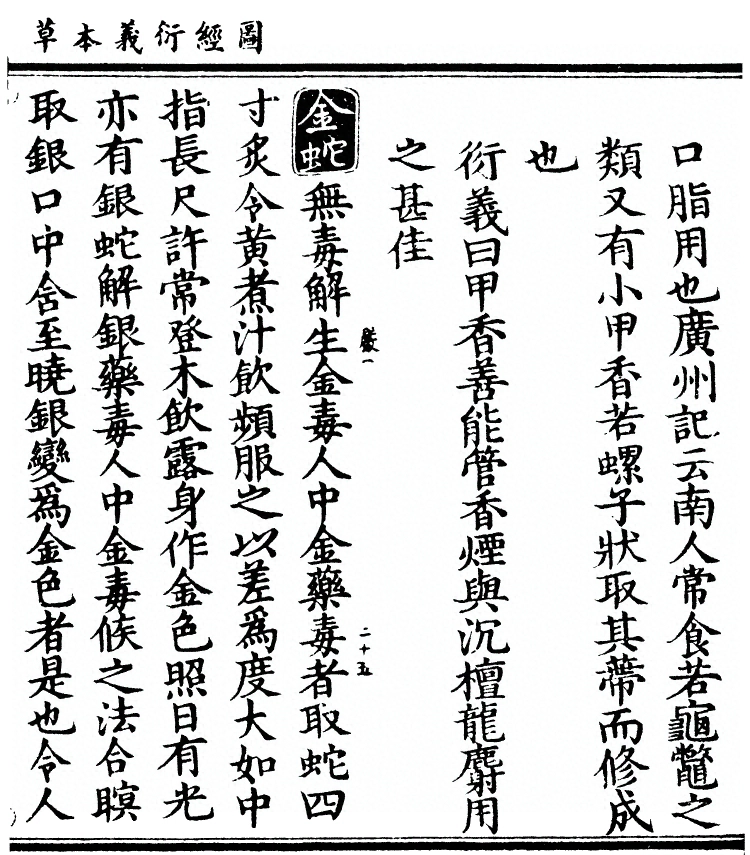 圖經衍義本草
口脂用也廣州記云南人常食若龜鼈之
類又有小甲香若螺子狀取其蔕而修成
也
衍義曰甲香善能管香煙與沉檀龍麝用
之甚佳
金蛇無毒解生金毒人中金藥毒者取蛇四
嚴一
二十五
寸炙令黃煮汁飲頻服之以差爲度大如中
指長尺許常登木飲露身作金色照日有光
亦有銀蛇解銀藥毒人中金毒候之法合瞑
取銀口中含至曉銀變爲金色者是也令人